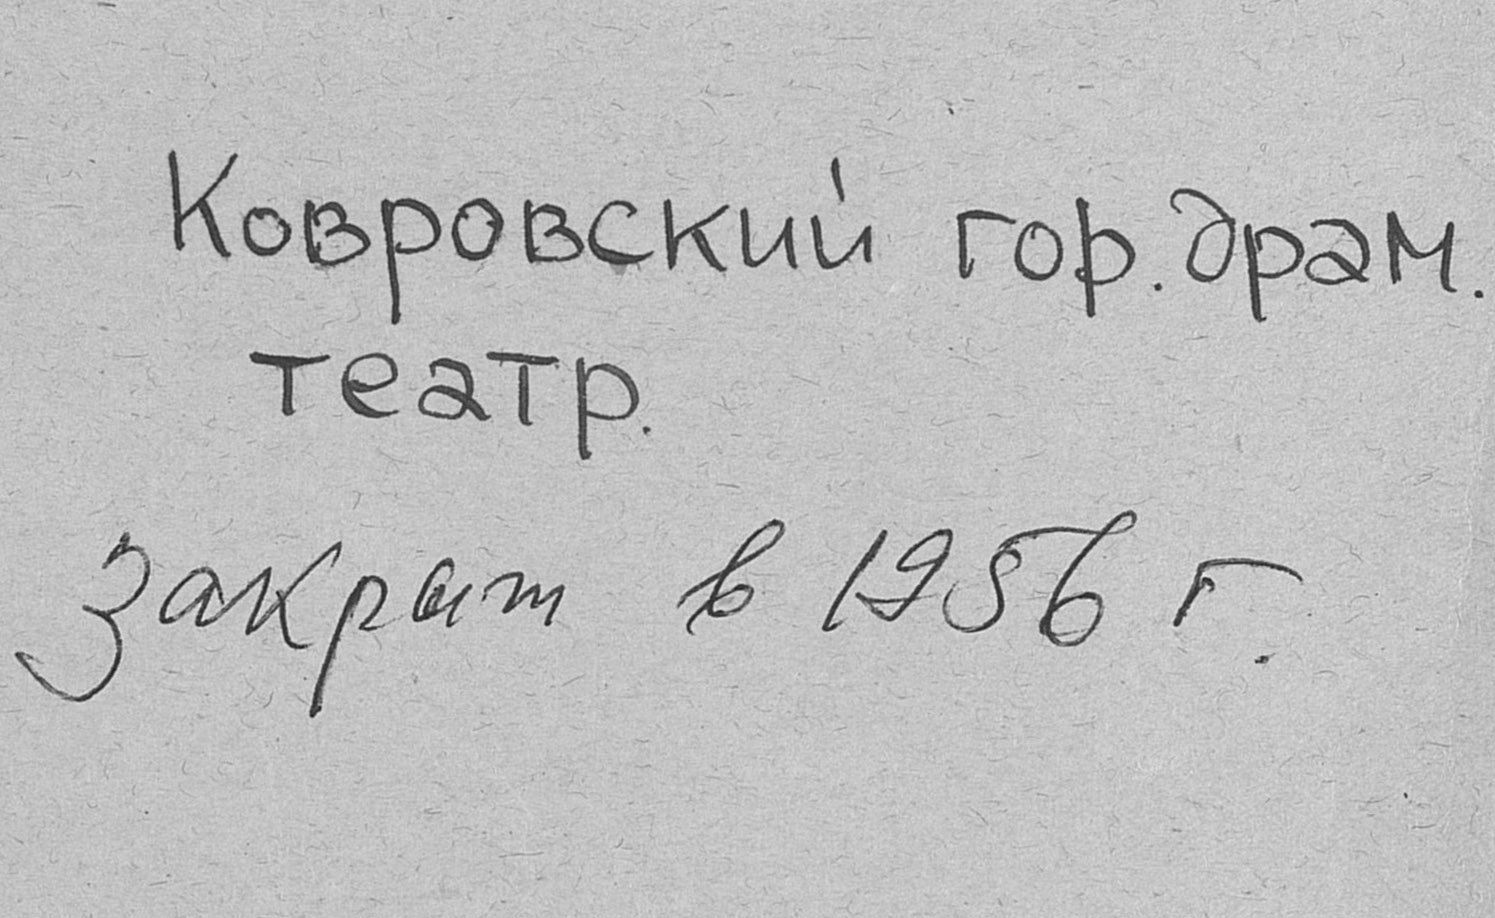 Ковровский гор. драм.
театр.
закрыт в 1956 г.